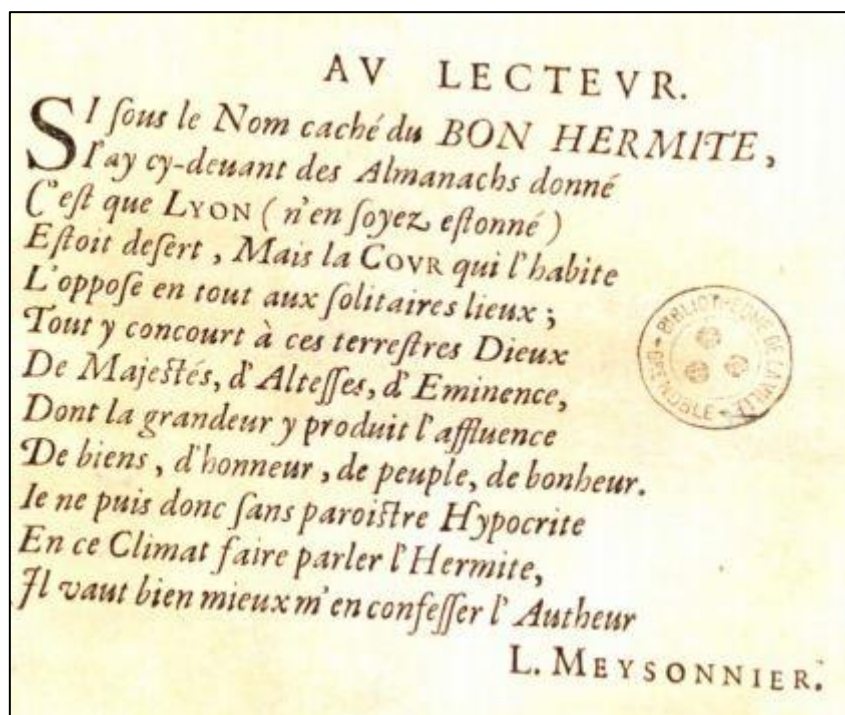 AV LECTEVR.
SI ſous le Nom caché du BON HERMITE,
I'ay cy-deuant des Almanachs donné
C'eſt que LYON ( n'en ſoyez eſtonné )
Eſtoit deſert, Mais la COVR qui l'habite
L'oppoſe en tout aux ſolitaires lieux ;
Tout y concourt à ces terreſtres Dieux
De Majeſtés, d'Alteſſes, d'Eminence,
Dont la grandeur y produit l'affluence
De biens, d'honneur, de peuple, de bonheur.
Ie ne puis donc ſans paroiſtre Hypocrite
En ce Climat faire parler l'Hermite,
Il vaut bien mieux m'en confeſſer l'Autheur
L. MEYSONNIER.
BIBLIOTHEQUE DE LA VILLE
GRENOBLE